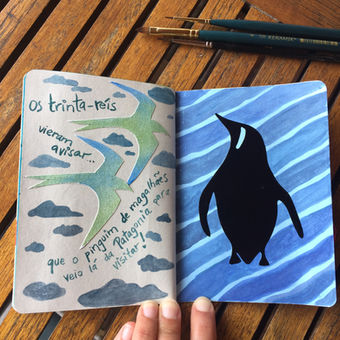 Os trinta-réis
vieram
avisar...
que o pinguim de magalhães
veio lá da Patagonia para
visitar!